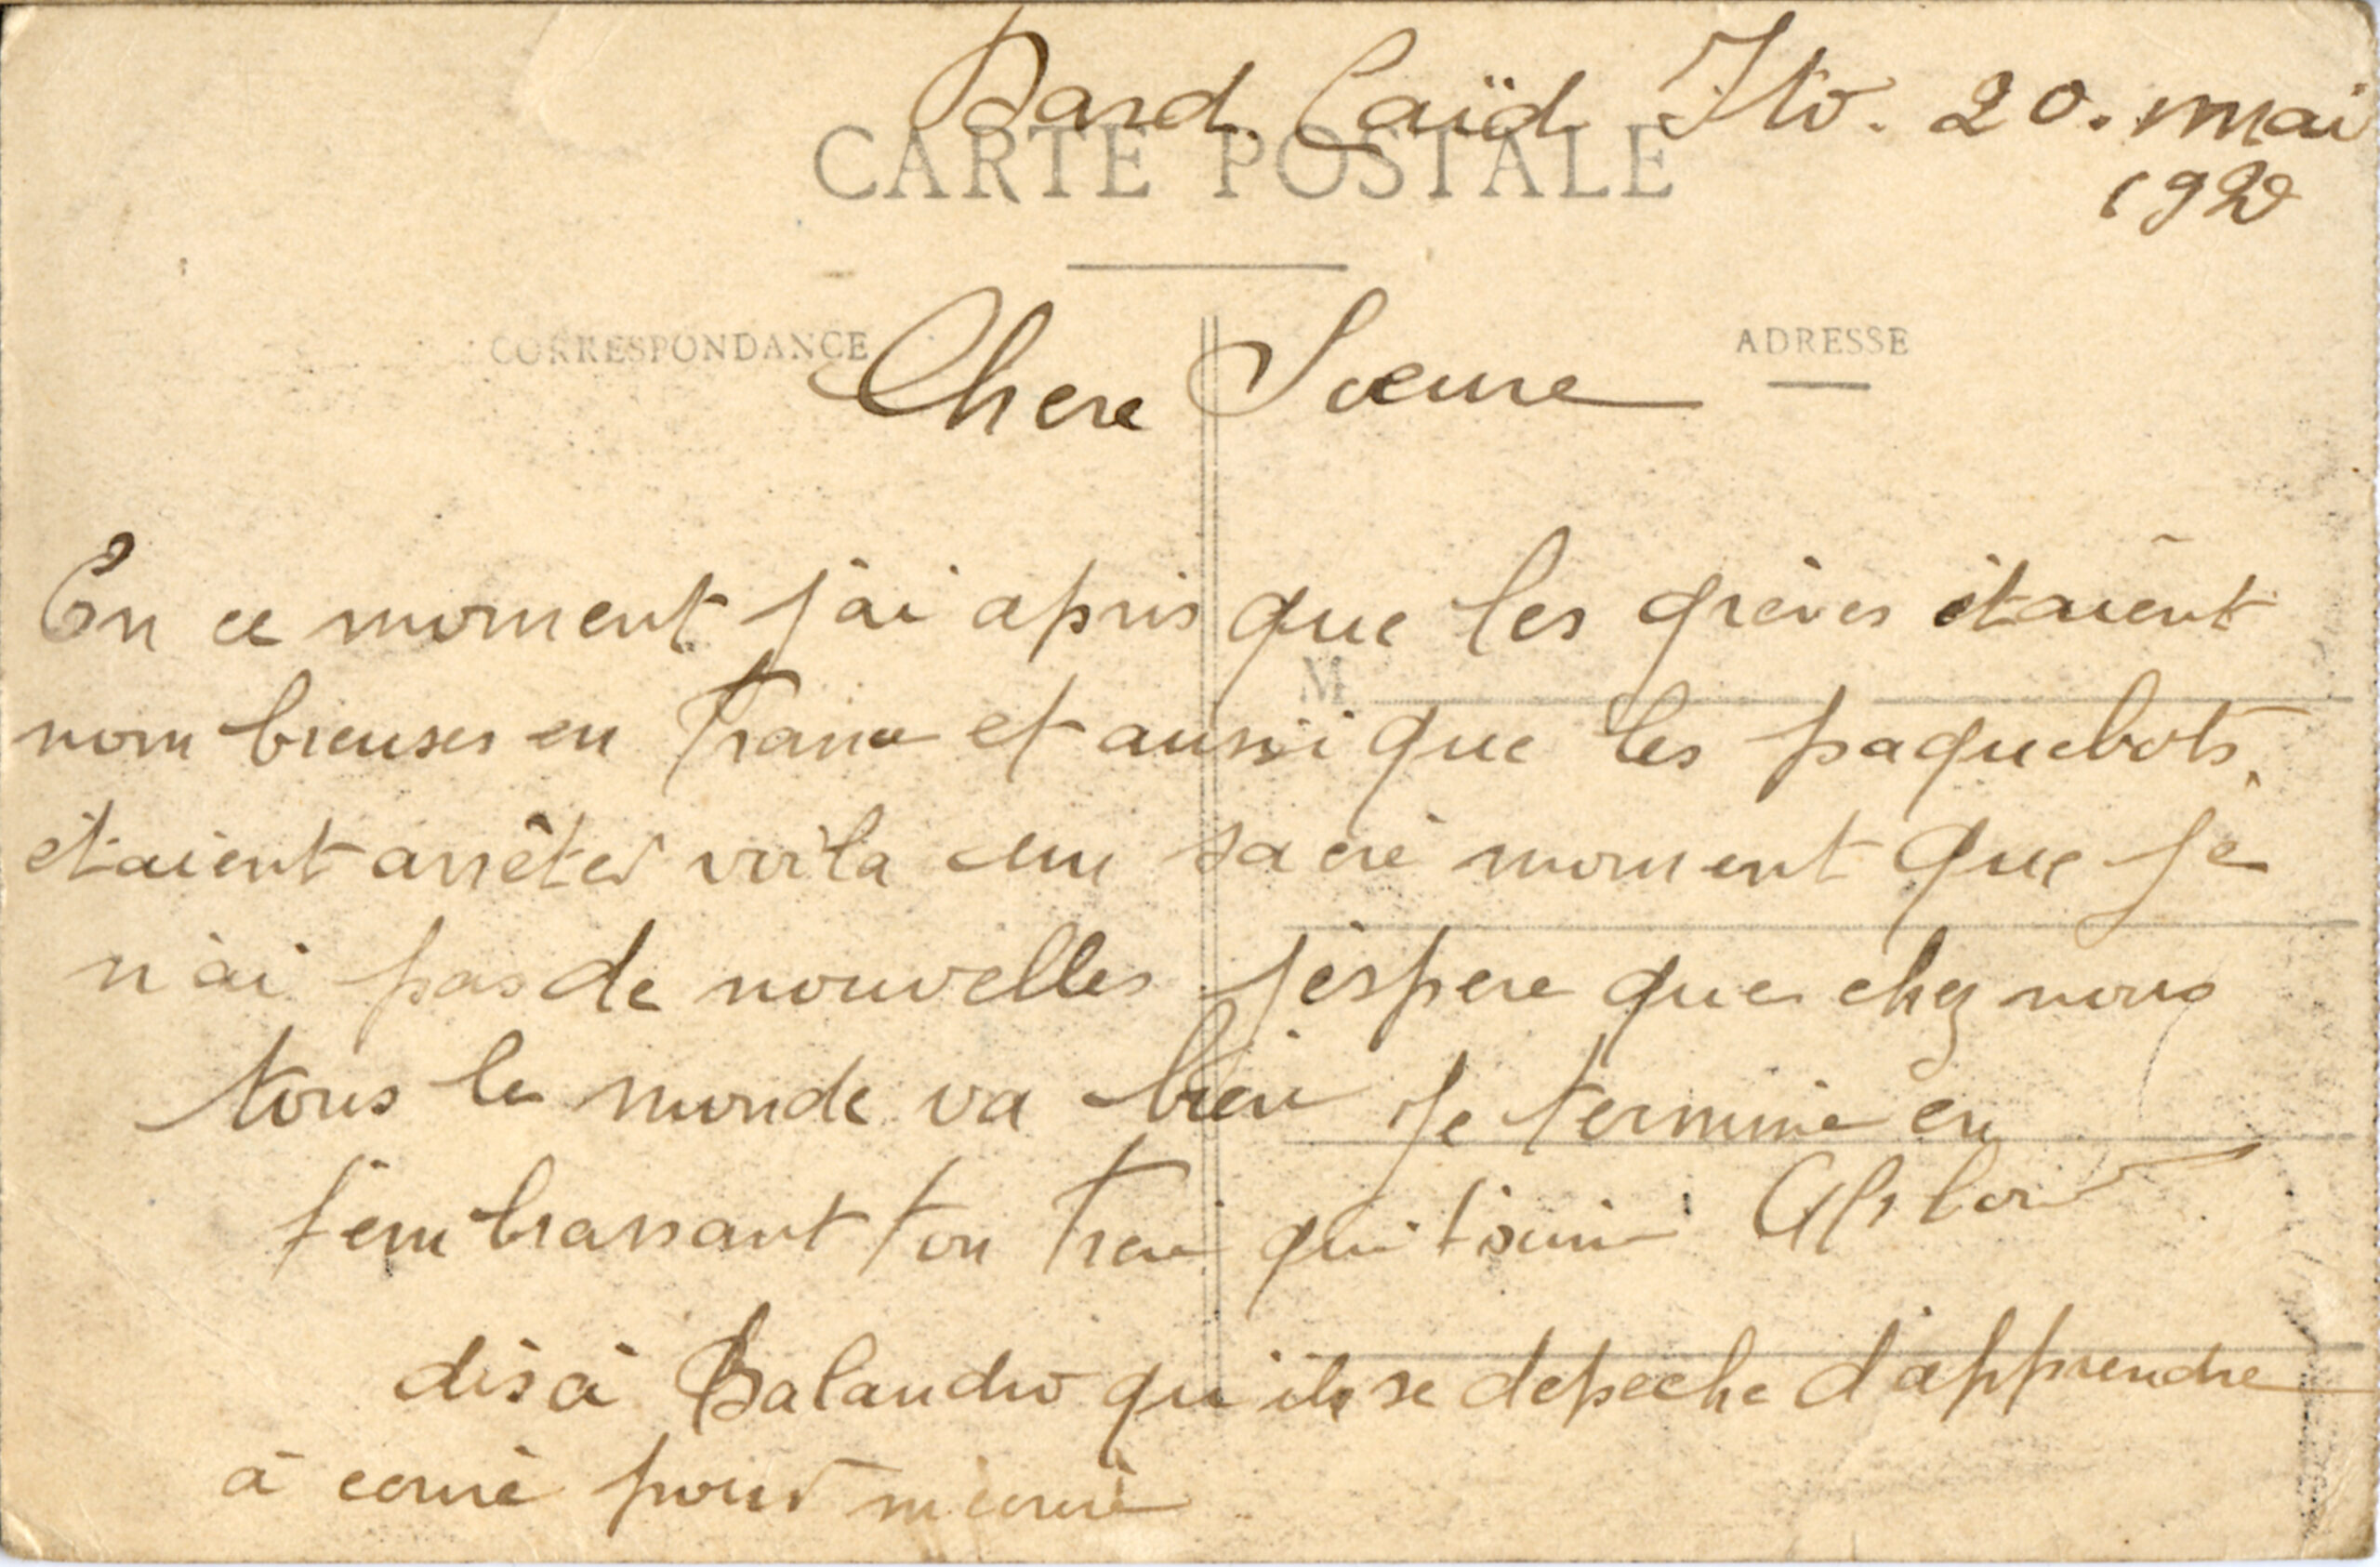 Bard. Caïd Ito. 20. mai
1920
CARTE POSTALE
CORRESPONDANCE
ADRESSE
Chere Sœure
En ce moment j'ai apris que les grèves étaient
M
nombreuses en France et aussi que les paquebots
étaient arrêtes voila un sacré moment que je
n'ai pas de nouvelles j'éspere que chez nous
tous le monde va bien Je termine en
t'embrassant ton Frere qui t'aime
dis à Balandro qu'ils se depeche d'apprendre
à ecrire pour m'ecrire